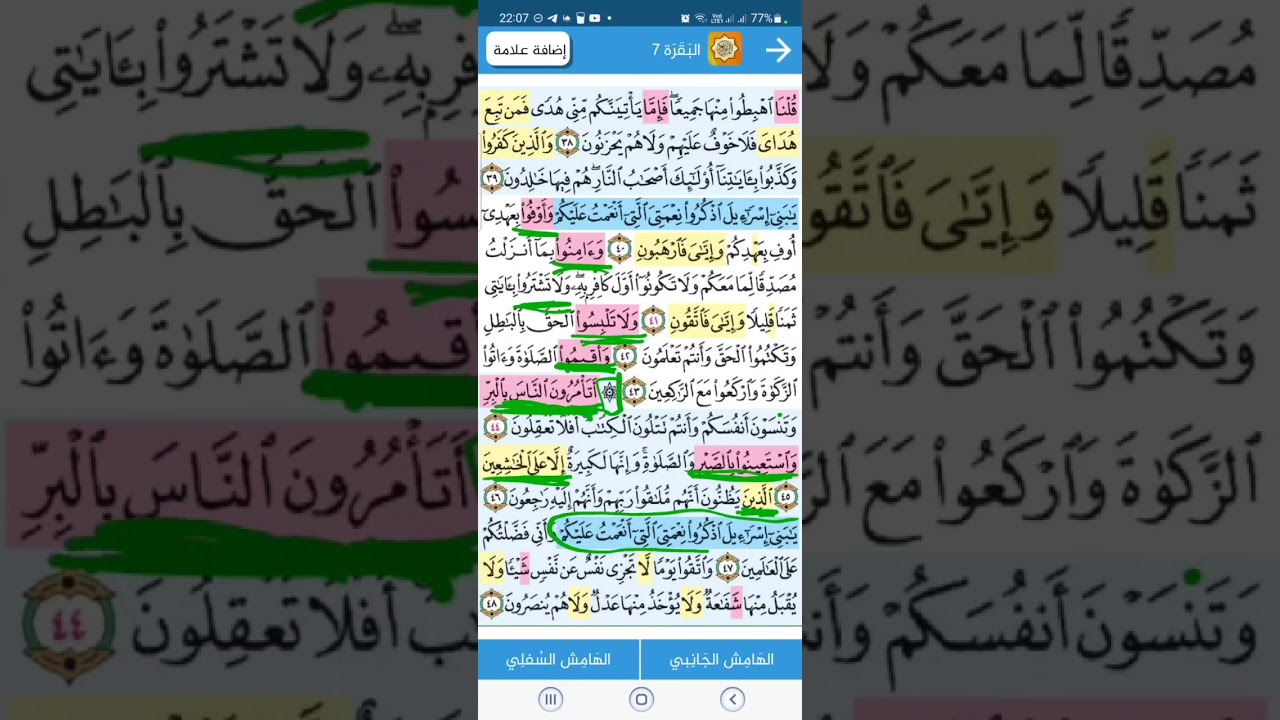 22:07
77%
البَقَرَة 7
إضافة علامة
قُلْنَا ٱهْبِطُوا۟ مِنْهَا جَمِيعًا ۖ فَإِمَّا يَأْتِيَنَّكُم مِّنِّى هُدًى فَمَن تَبِعَ
هُدَاىَ فَلَا خَوْفٌ عَلَيْهِمْ وَلَا هُمْ يَحْزَنُونَ ٣٨ وَٱلَّذِينَ كَفَرُوا۟
وَكَذَّبُوا۟ بِـَٔايَـٰتِنَآ أُو۟لَـٰٓئِكَ أَصْحَـٰبُ ٱلنَّارِ ۖ هُمْ فِيهَا خَـٰلِدُونَ ٣٩
يَـٰبَنِىٓ إِسْرَٰٓءِيلَ ٱذْكُرُوا۟ نِعْمَتِىَ ٱلَّتِىٓ أَنْعَمْتُ عَلَيْكُمْ وَأَوْفُوا۟ بِعَهْدِىٓ
أُوفِ بِعَهْدِكُمْ وَإِيَّـٰىَ فَٱرْهَبُونِ ٤٠ وَءَامِنُوا۟ بِمَآ أَنزَلْتُ
مُصَدِّقًا لِّمَا مَعَكُمْ وَلَا تَكُونُوٓا۟ أَوَّلَ كَافِرٍۭ بِهِۦ ۖ وَلَا تَشْتَرُوا۟ بِـَٔايَـٰتِى
ثَمَنًا قَلِيلًا وَإِيَّـٰىَ فَٱتَّقُونِ ٤١ وَلَا تَلْبِسُوا۟ ٱلْحَقَّ بِٱلْبَـٰطِلِ
وَتَكْتُمُوا۟ ٱلْحَقَّ وَأَنتُمْ تَعْلَمُونَ ٤٢ وَأَقِيمُوا۟ ٱلصَّلَوٰةَ وَءَاتُوا۟
ٱلزَّكَوٰةَ وَٱرْكَعُوا۟ مَعَ ٱلرَّٰكِعِينَ ٤٣ ۞ أَتَأْمُرُونَ ٱلنَّاسَ بِٱلْبِرِّ
وَتَنسَوْنَ أَنفُسَكُمْ وَأَنتُمْ تَتْلُونَ ٱلْكِتَـٰبَ ۚ أَفَلَا تَعْقِلُونَ ٤٤
وَٱسْتَعِينُوا۟ بِٱلصَّبْرِ وَٱلصَّلَوٰةِ ۚ وَإِنَّهَا لَكَبِيرَةٌ إِلَّا عَلَى ٱلْخَـٰشِعِينَ
٤٥ ٱلَّذِينَ يَظُنُّونَ أَنَّهُم مُّلَـٰقُوا۟ رَبِّهِمْ وَأَنَّهُمْ إِلَيْهِ رَٰجِعُونَ ٤٦
يَـٰبَنِىٓ إِسْرَٰٓءِيلَ ٱذْكُرُوا۟ نِعْمَتِىَ ٱلَّتِىٓ أَنْعَمْتُ عَلَيْكُمْ وَأَنِّى فَضَّلْتُكُمْ
عَلَى ٱلْعَـٰلَمِينَ ٤٧ وَٱتَّقُوا۟ يَوْمًا لَّا تَجْزِى نَفْسٌ عَن نَّفْسٍ شَيْـًٔا وَلَا
يُقْبَلُ مِنْهَا شَفَـٰعَةٌ وَلَا يُؤْخَذُ مِنْهَا عَدْلٌ وَلَا هُمْ يُنصَرُونَ ٤٨
الهَامِش الجَانِبي
الهَامِش السُفلِي